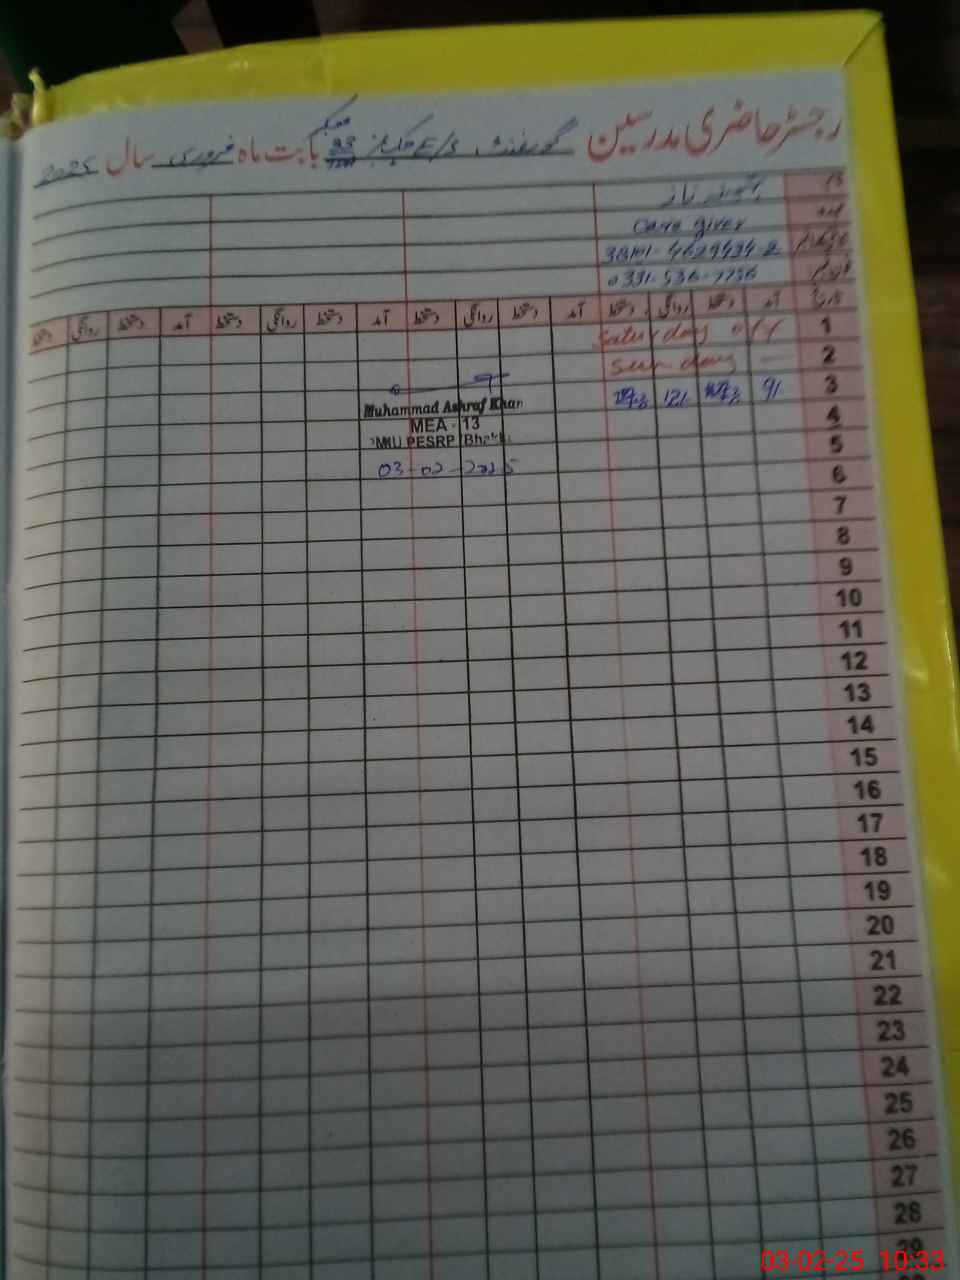 رجسٹر حاضری مدرسین گورنمنٹ E/S بابت ماہ فروری سال 2025
نام
ناز
عہدہ
Care giver
38101-4629434-2
0331-536-7756
تاریخ آمد دستخط روانگی دستخط آمد دستخط روانگی دستخط آمد دستخط روانگی دستخط آمد دستخط روانگی دستخط
1 Saturday off
2 Sunday —
3 9/ 12/
Muhammad Ashraf Khan
4 MEA - 13
5 PESRP
03-02-2025
6
7
8
9
10
11
12
13
14
15
16
17
18
19
20
21
22
23
24
25
26
27
28
29
03-02-25 10:33